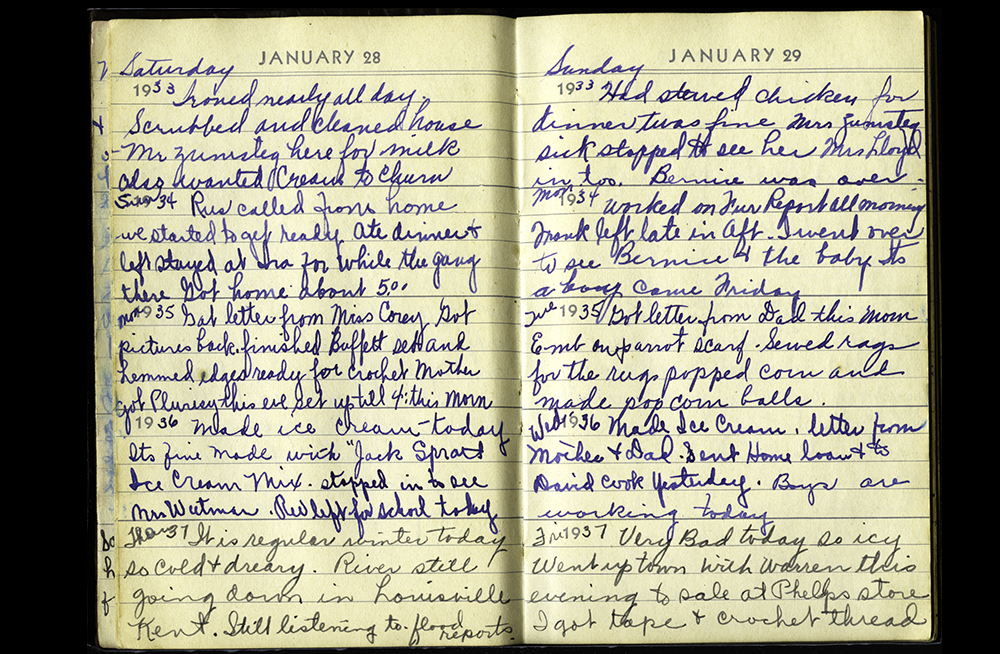 JANUARY 28
Saturday
1933 Ironed nearly all day.
Scrubbed and cleaned house
Mr Zumsteg here for milk
also wanted Cream to Churn
Sun 34 Rus called from home
we started to get ready Ate dinner &
left stayed at Ira for while the gang
there Got home about 5.00
Mon 1935 Got letter from Miss Corey Got
pictures back. finished Buffett set and
hemmed edges ready for crochet Mother
got Plurisy this eve set up till 4: this Morn
1936 Made ice cream today
Its fine made with "Jack Spratt
Ice Cream Mix. stopped in to see
Mrs left for school today
Thur 37 It is regular winter today
so cold & dreary. River still
going down in Louisville
Kent. Still listening to flood
reports.
JANUARY 29
Sunday
1933 Had stewed chicken for
dinner twas fine Mrs Zumsteg
sick stopped to see her Mrs Lloyd
in too. Bernice was over.
Mon 1934 Worked on Fur Report all morning
Frank left late in aft. I went over
to see Bernice & the baby Its
a boy came Friday
Tue 1935 Got letter from Dad this Morn
Emb on parrot scarf. Sewed rags
for the rugs popped corn and
made pop corn balls.
Wed 1936 Made Ice Cream. letter from
Mother & Dad. Sent Home loan & to
David Cook Yesterday. Boys are
working today
Fri 1937 Very Bad today so icy
Went up town with Warren this
evening to sale at Phelps store
I got tape & crochet thread